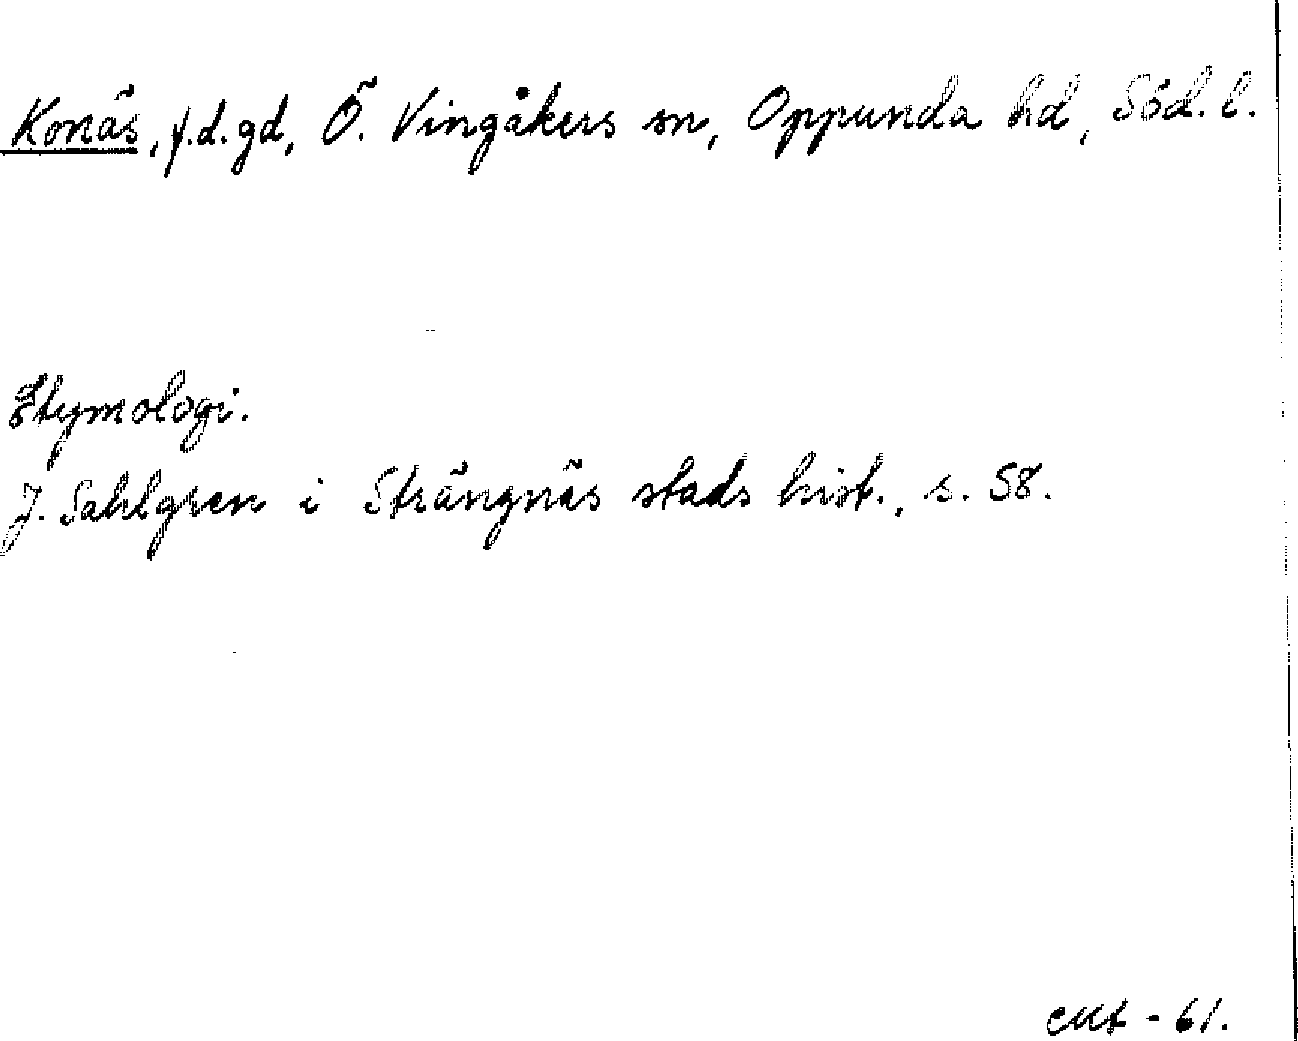 Konäs, f.d. gd, Ö. Vingåkers sn, Oppunda hd, Söd. l.
Etymologi.
J. Sahlgren i Strängnäs stads hist., s. 58.
-61.